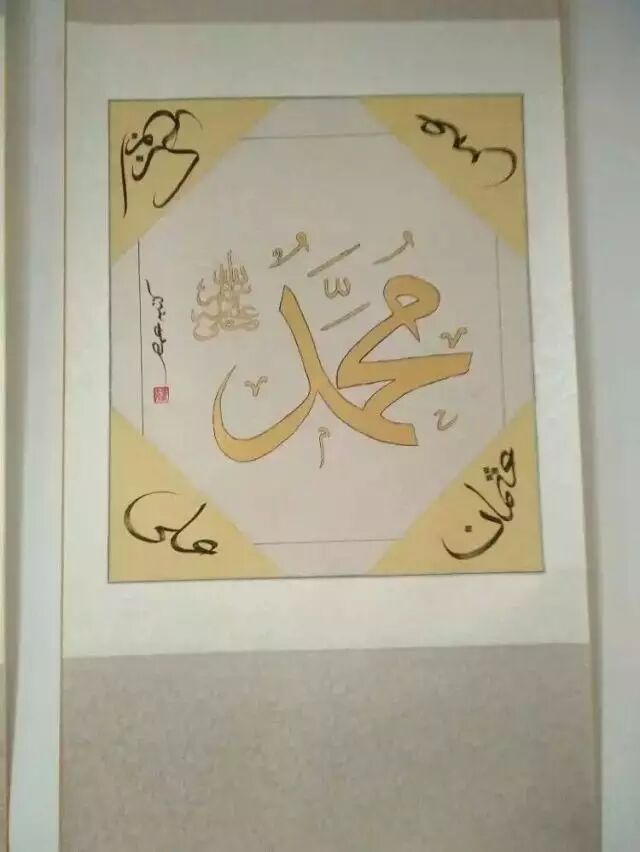 عمر
ابوبكر
مُحَمَّدٌ
صلى الله عليه وسلم
كتبه
عثمان
علی